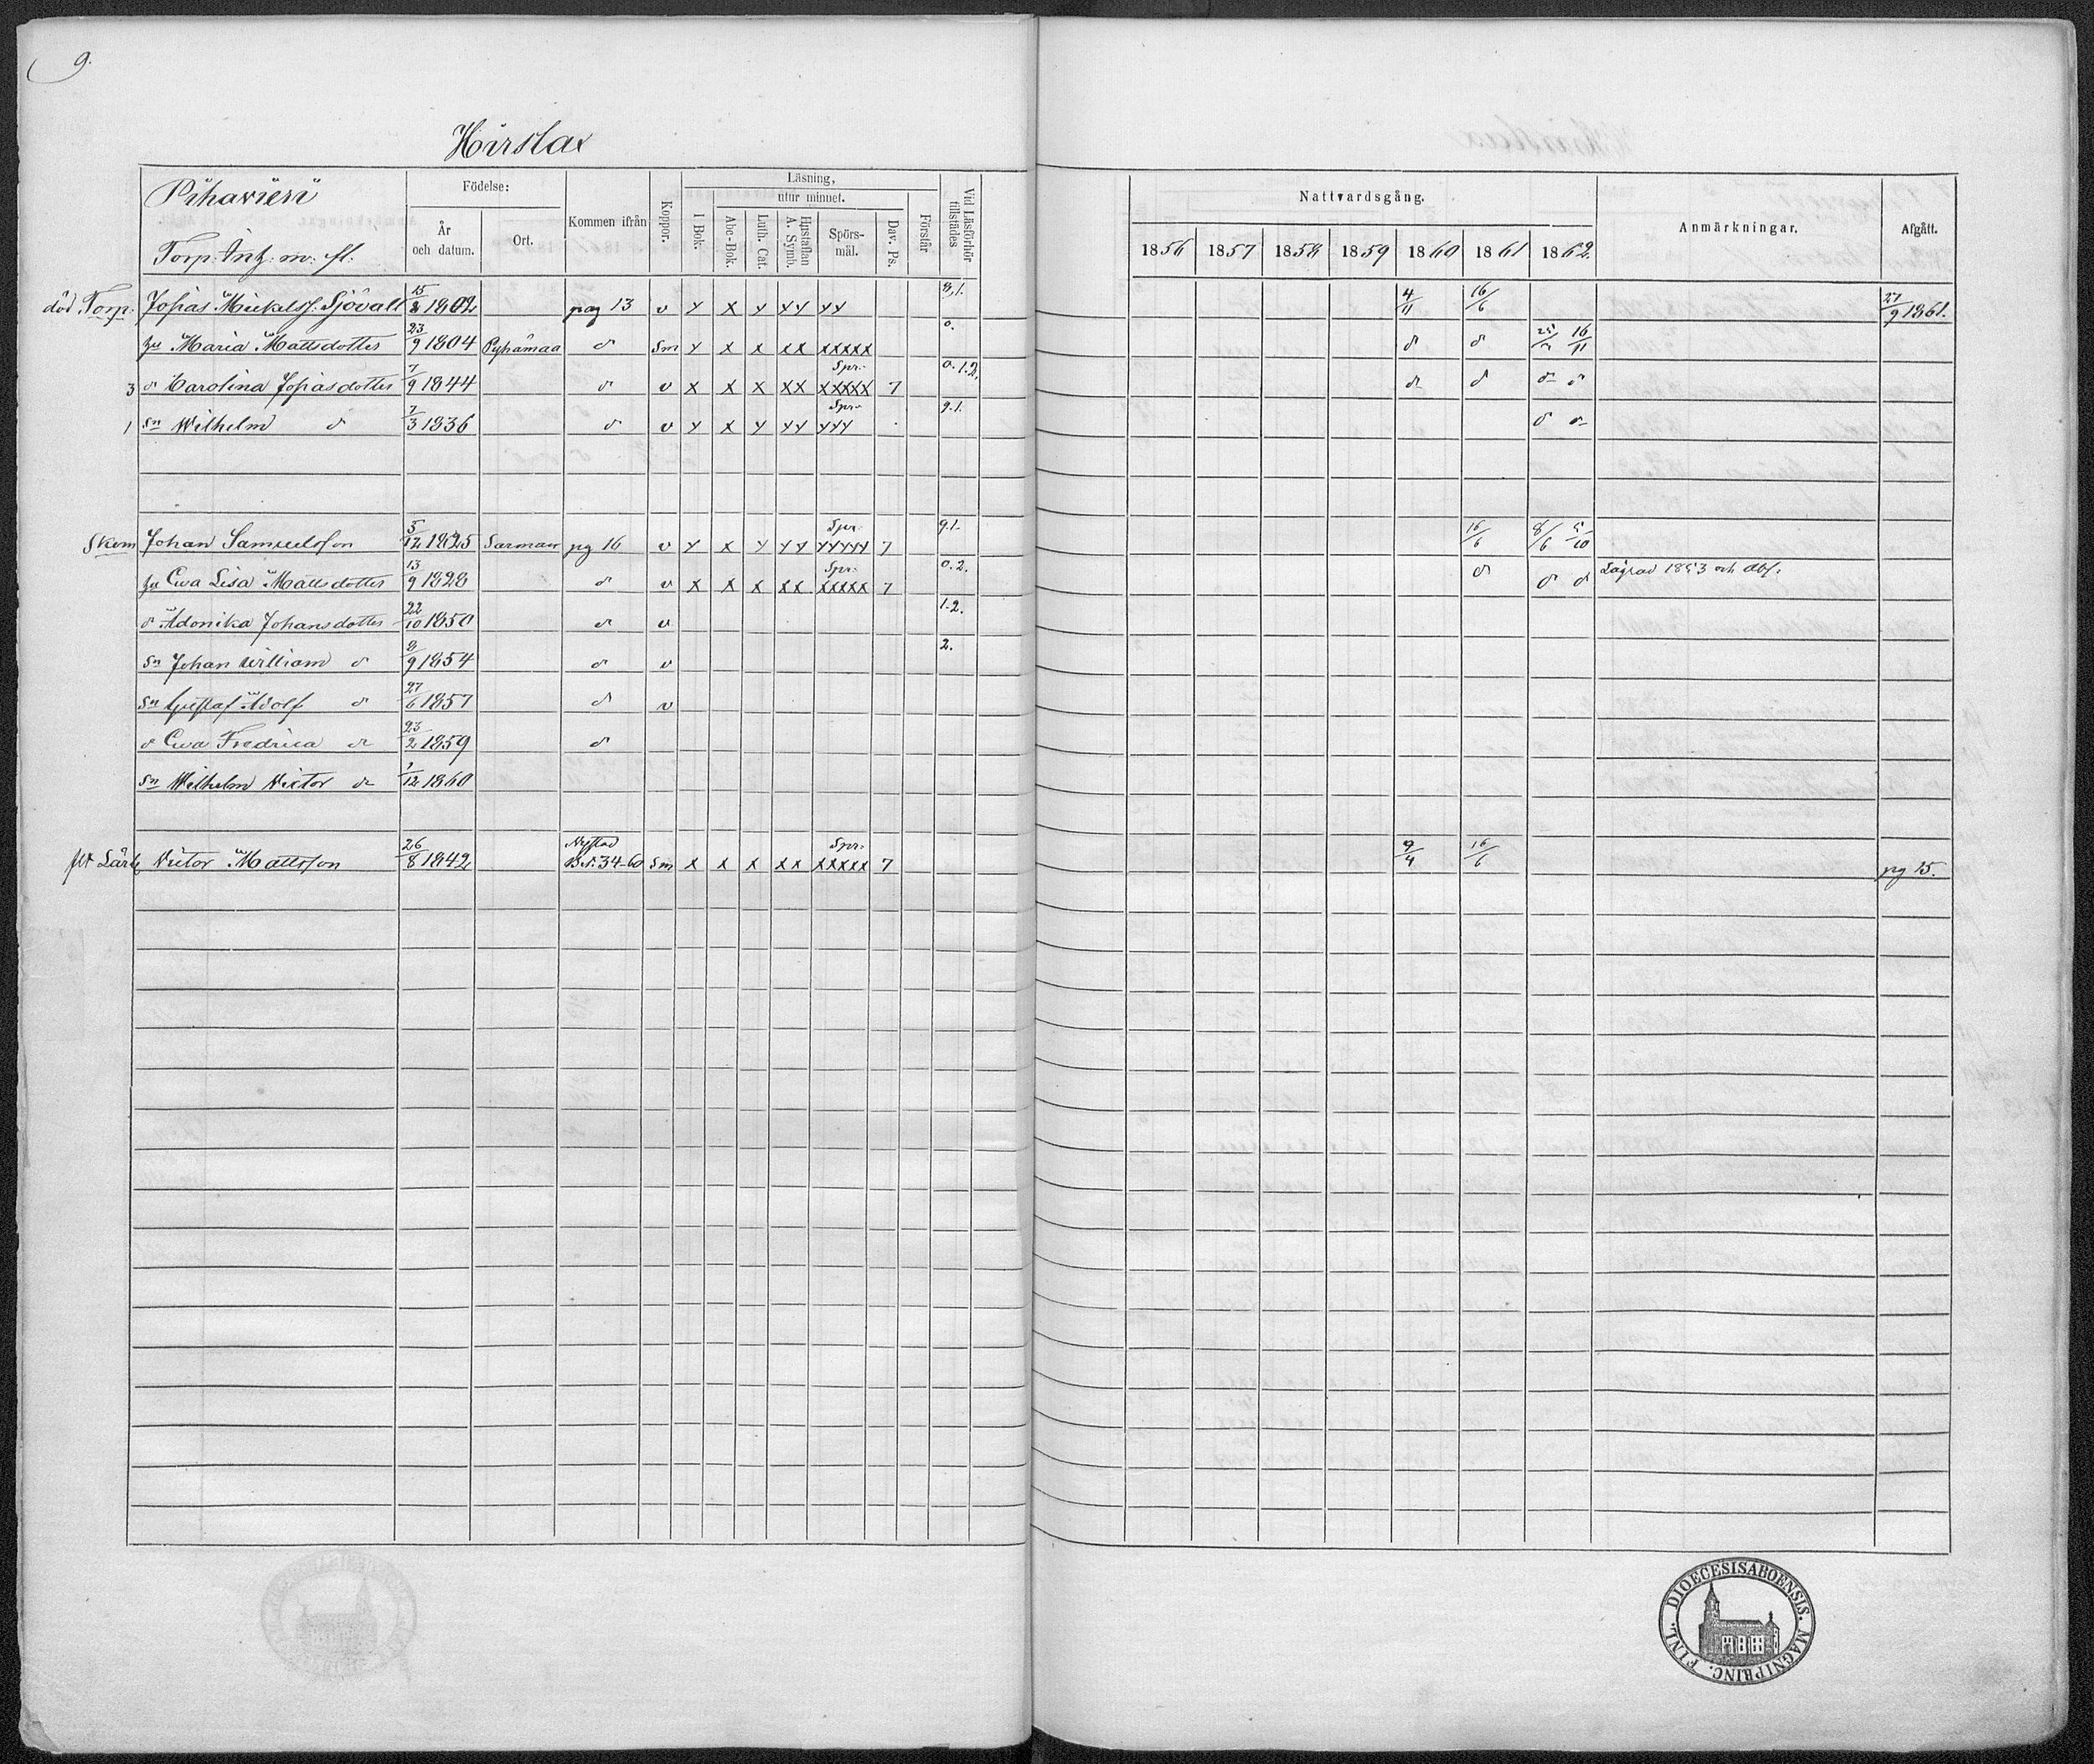 9.
Hirslax
Pihavieri
Torp. Intz: m. fl.
Födelse:
År och datum.
Ort.
Kommen ifrån
Koppor.
Läsning,
utur minnet.
I Bok.
Abc-Bok.
Luth. Cat.
Hustaflan A. Symb.
Spörs-mål.
Dav. Ps.
Förstår
Vid Läsförhör tillstädes
Nattvardsgång.
1856 1857 1858 1859 1860 1861 1862
Anmärkningar.
Afgått.
död Torp. Josias Mickelss. Sjövall 15/8 1802 pag 13 v y x y yy yy 8,1. 4/11 16/6 27/9 1861.
hu Maria Mattsdotter 23/9 1804 Pyhämaa d Sm y x x xx xxxxx 0. d d 16/11
3 d Carolina Josiasdotter 7/9 1844 d v x x x xx Spr. xxxxx 7 0.1.2. d d d d
1 sn Wilhelm d 7/3 1836 d v y x y yy Spr. yyy 9.1. d d
Skom Johan Samuelsson 5/12 1825 Sarmaa pg 16 v y x y yy Spr. yyyyy 7 9.1. 16/6 8/6 5/10
hu Ewa Lisa Mattsdotter 13/9 1828 d v x x x xx Spr. xxxxx 7 0.2. d d d Lagrad 1853 och abs.
d Adonika Johansdotter 22/10 1850 d v 1.2.
sn Johan William d 8/9 1854 d v 2.
sn Gustaf Adolf d 27/6 1857 d v
d Ewa Fredrica d 23/2 1859 d
sn Wilhelm Victor d 1/12 1860
Lärk Victor Mattsson 26/8 1842 Nystad B.N. 34-60 Sm x x x xx Spr. xxxxx 7 9/4 16/6 pg 15.
DIOECESIS ABOENSIS. MAGNI PRINC. FINL.